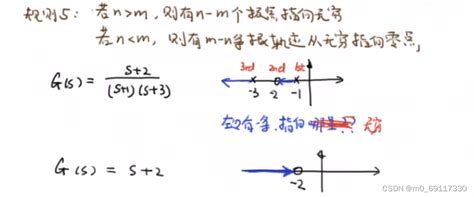 规则5: 若n>m, 则有n-m个极点指向无穷
若n<m, 则有m-n条根轨迹从无穷指向零点,
G(s) = s+2 / (s+1)(s+3)
3rd 2nd 1st
-3 -2 -1
左边有一条, 指向 无穷
G(s) = s+2
-2
CSDN @m0_69117330